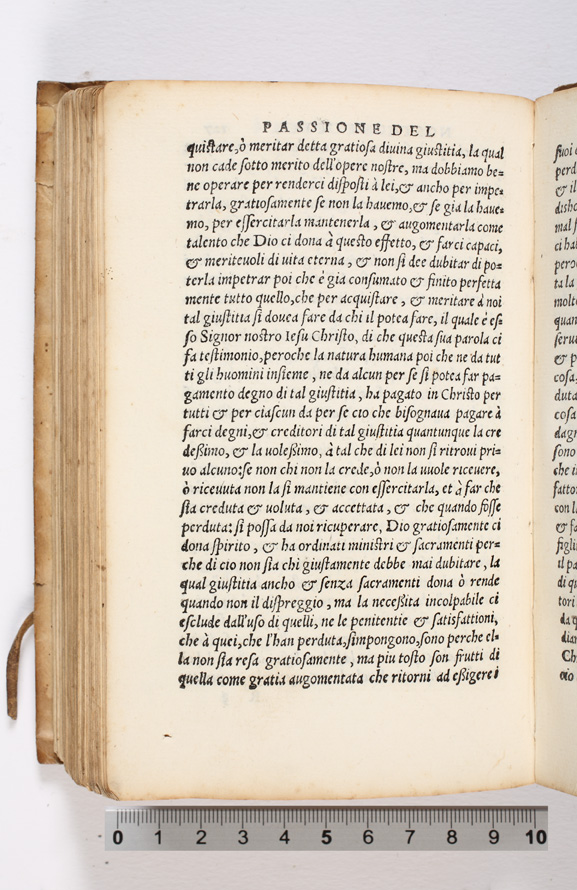 PASSIONE DEL
quistare, ò meritar detta gratiosa diuina giustitia, la qual
non cade sotto merito dell'opere nostre, ma dobbiamo be=
ne operare per renderci disposti à lei, & ancho per impe=
trarla, gratiosamente se non la hauemo, & se gia la haue=
mo, per essercitarla mantenerla, & augomentarla come
talento che Dio ci dona à questo effetto, & farci capaci,
& meriteuoli di uita eterna, & non si dee dubitar di po=
terla impetrar poi che è gia consumato & finito perfetta
mente tutto quello, che per acquistare, & meritare à noi
tal giustitia si douea fare da chi il potea fare, il quale è es=
so Signor nostro Iesu Christo, di che questa sua parola ci
fa testimonio, peroche la natura humana poi che ne da tut
ti gli huomini insieme, ne da alcun per se si potea far pa=
gamento degno di tal giustitia, ha pagato in Christo per
tutti & per ciascun da per se cio che bisognaua pagare à
farci degni, & creditori di tal giustitia quantunque la cre
dessimo, & la uolessimo, à tal che di lei non si ritroui pri=
uo alcuno: se non chi non la crede, ò non la uuole riceuere,
ò riceuuta non la si mantiene con essercitarla, et à far che
sia creduta & uoluta, & accettata, & che quando fosse
perduta: si possa da noi ricuperare, Dio gratiosamente ci
dona spirito, & ha ordinati ministri & sacramenti per=
che di cio non sia chi giustamente debbe mai dubitare, la
qual giustitia ancho & senza sacramenti dona ò rende
quando non il dispreggio, ma la necessita incolpabile ci
esclude dall'uso di quelli, ne le penitentie & satisfattioni,
che à quei, che l'han perduta, s'impongono, sono perche el=
la non sia resa gratiosamente, ma piu tosto son frutti di
quella come gratia augomentata che ritorni ad essigere i
suoi
perd
& il
mal
ci ha
pero
ta la
molte
quan
serui
& p
cosa,
duta
cosa
dagn
sono
che i
fatto
con l
& f
figli
il pa
di q
tori
da q
dian
Ch
0 1 2 3 4 5 6 7 8 9 10